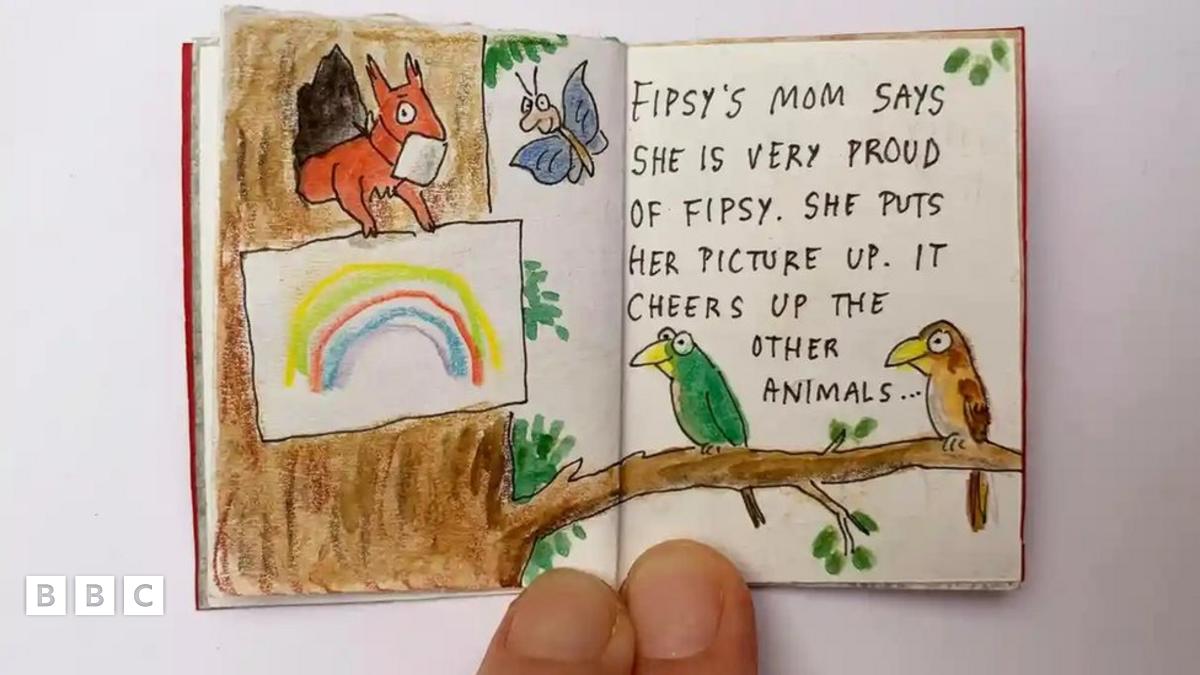 FIPSY'S MOM SAYS
SHE IS VERY PROUD
OF FIPSY. SHE PUTS
HER PICTURE UP. IT
CHEERS UP THE
OTHER
ANIMALS...
BBC